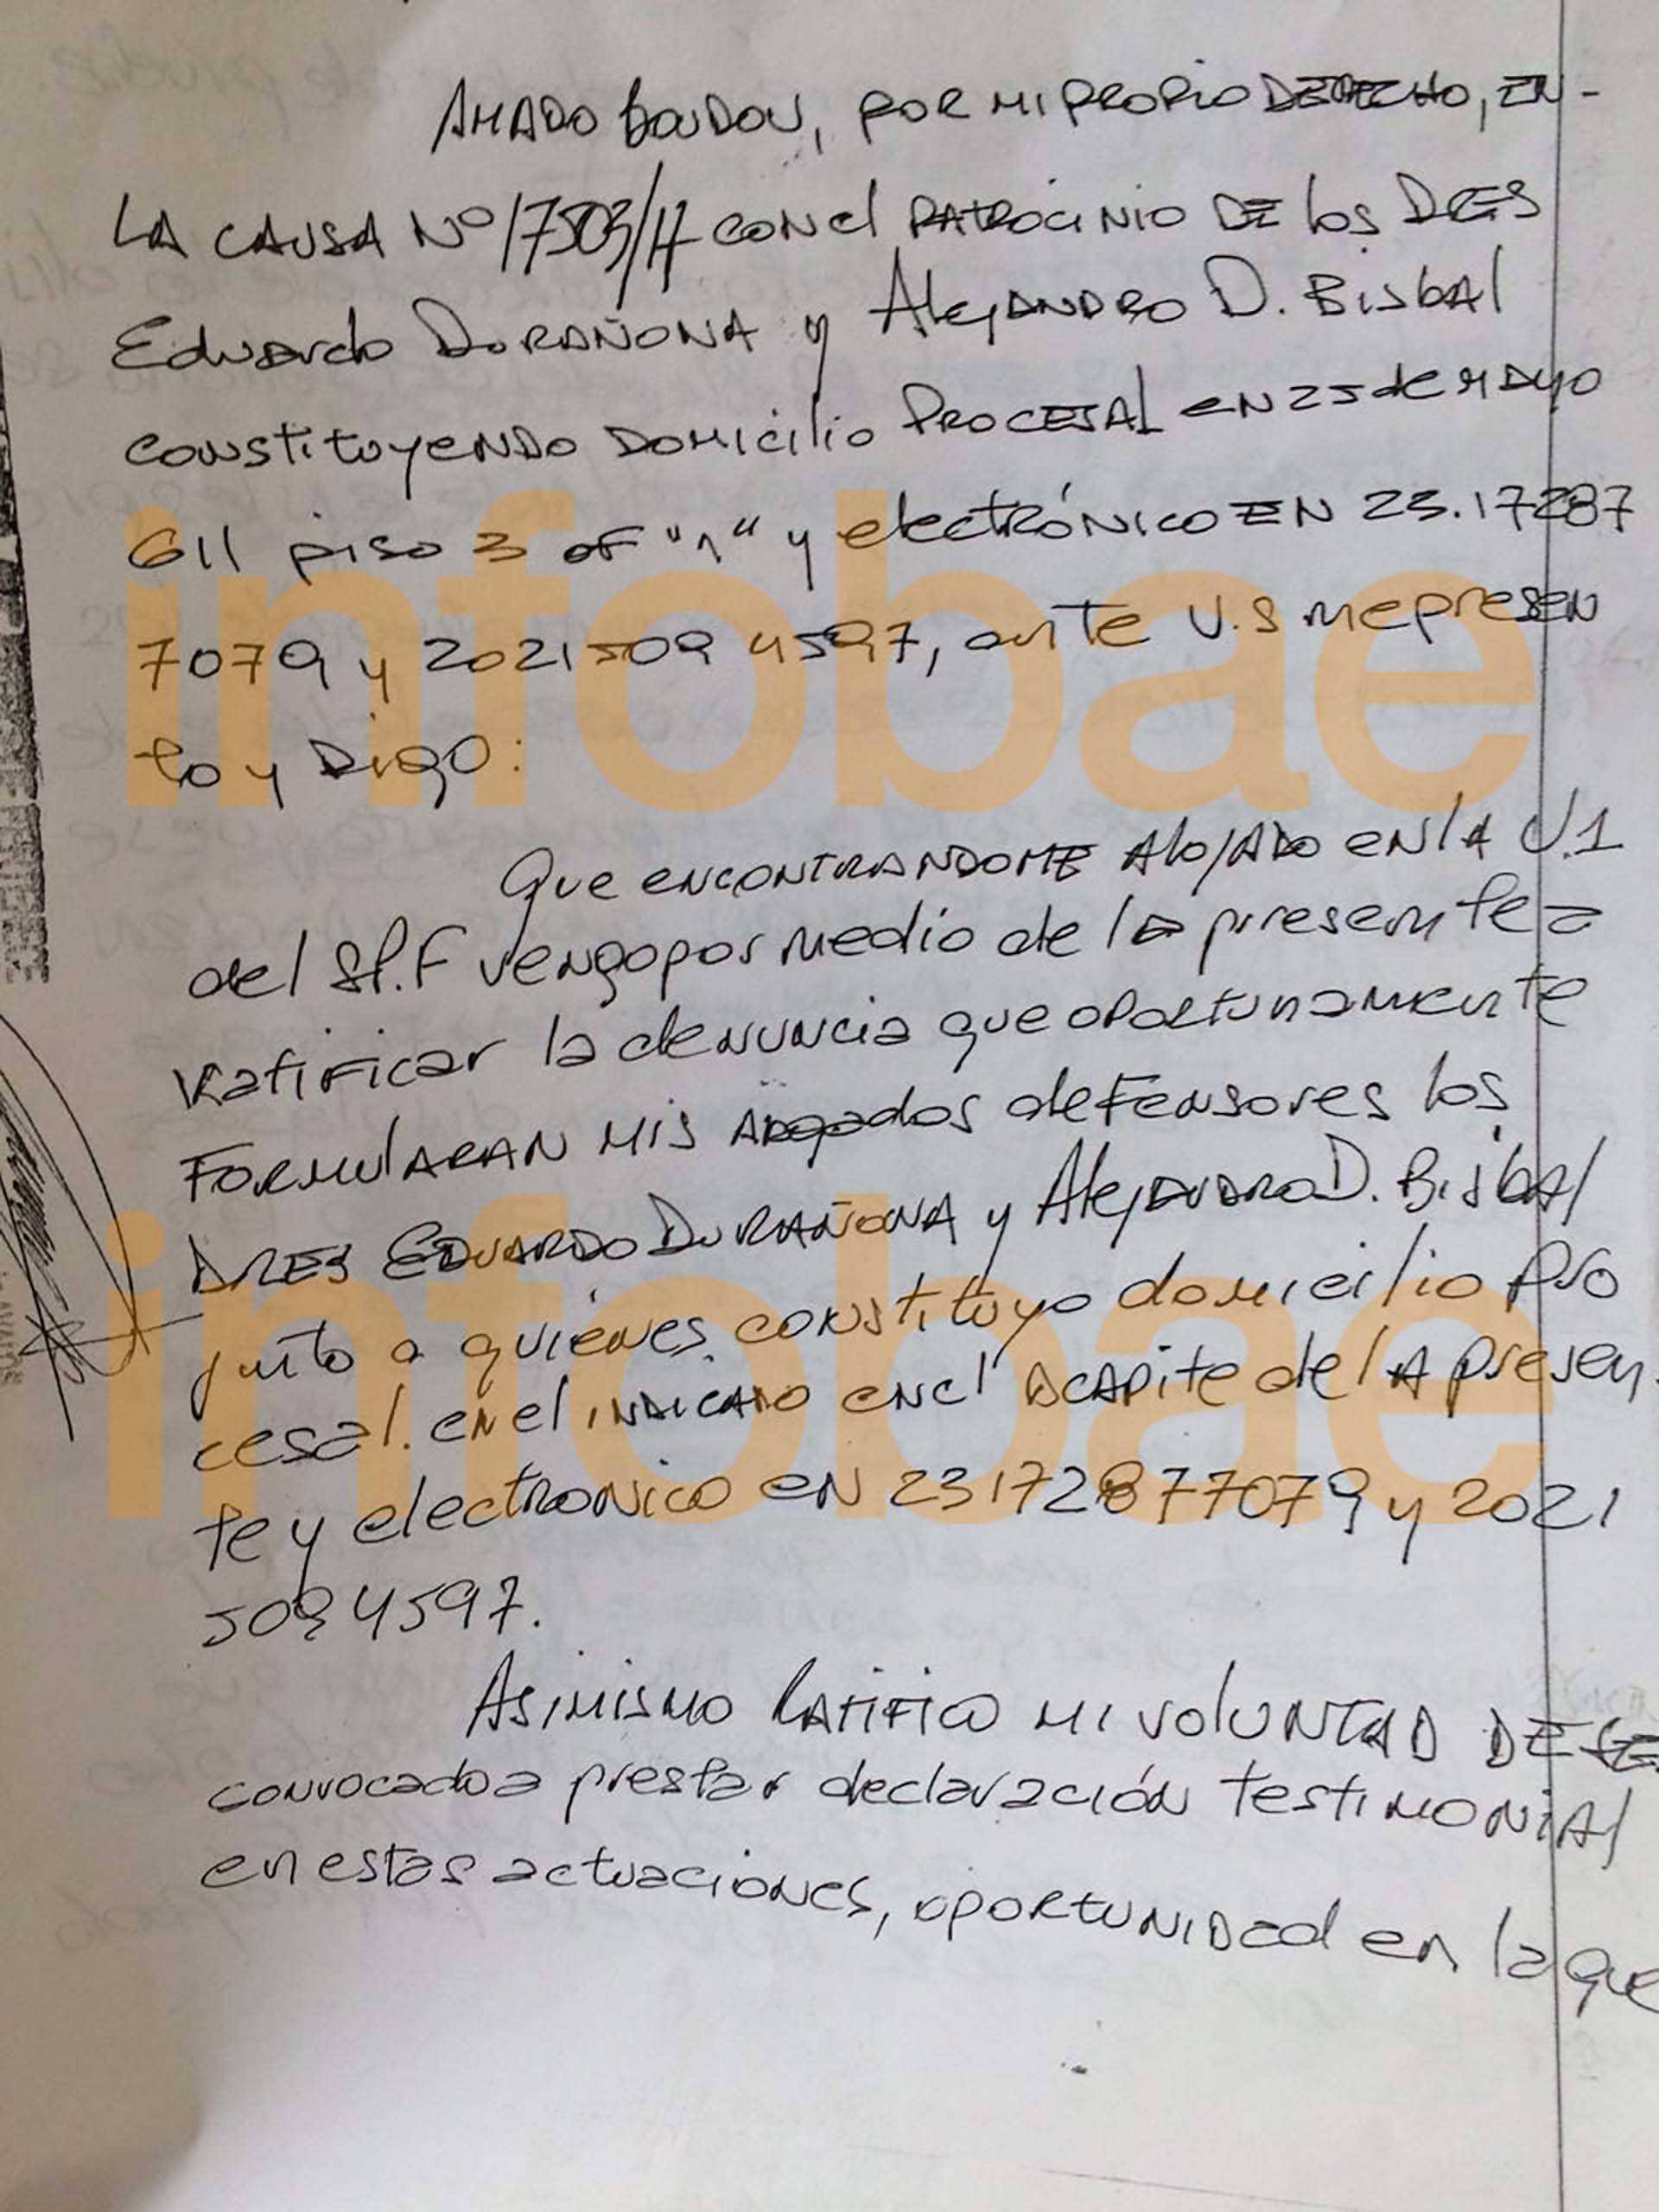 AMADO BOUDOU, POR MI PROPIO DERECHO, EN-
LA CAUSA Nº 17503/17 CON el PATROCINIO DE los DRES
Eduardo DURAÑONA y Alejandro D. Bisbal
constituyendo domicilio Procesal en 25 de mayo
611 piso 3 of "1" y electrónico EN 23.17287
7079 y 20215094597, ante V.S me presen
to y Digo:
Que encontrandome Alojado en la U.1
del SP.F vengo por medio de la presente a
Ratificar la denuncia que oportunamente
FORMULARAN MIS abogados defensores los
DRES EDUARDO DURAÑONA y Alejandro D. Bisbal
junto a quienes constituyo domicilio pro
cesal. en el indicado en el acapite de la presen
te y electronico en 23172877079 y 2021
5094597.
Asimismo Ratifico mi voluntad DE SER
convocado a prestar declaración testimonial
en estas actuaciones, oportunidad en la que
infobae
infobae